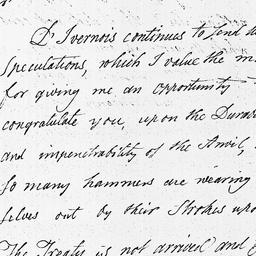 D'Ivernois continues to send
Speculations, which I value the
for giving me an opportunity
congratulate you, upon the
and impenetrability of the Anvil,
so many hammers are wearing
selves out by their Strokes upo
The Treaty is not arrived and